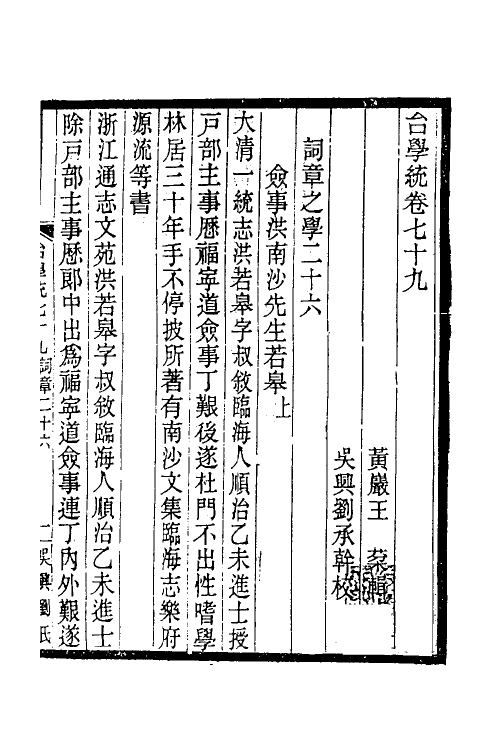 台學統卷七十九
黃巖王棻輯
吳興劉承幹校
詞章之學二十六
僉事洪南沙先生若皋上
大清一統志洪若皋字叔敘臨海人順治乙未進士授
戸部主事歷福寧道僉事丁艱後遂杜門不出性嗜學
林居三十年手不停披所著有南沙文集臨海志樂府
源流等書
浙江通志文苑洪若皋字叔敘臨海人順治乙未進士
除戸部主事歷郎中出爲福寧道僉事連丁內外艱遂
台學統七十九詞章二十六
一吳興劉氏